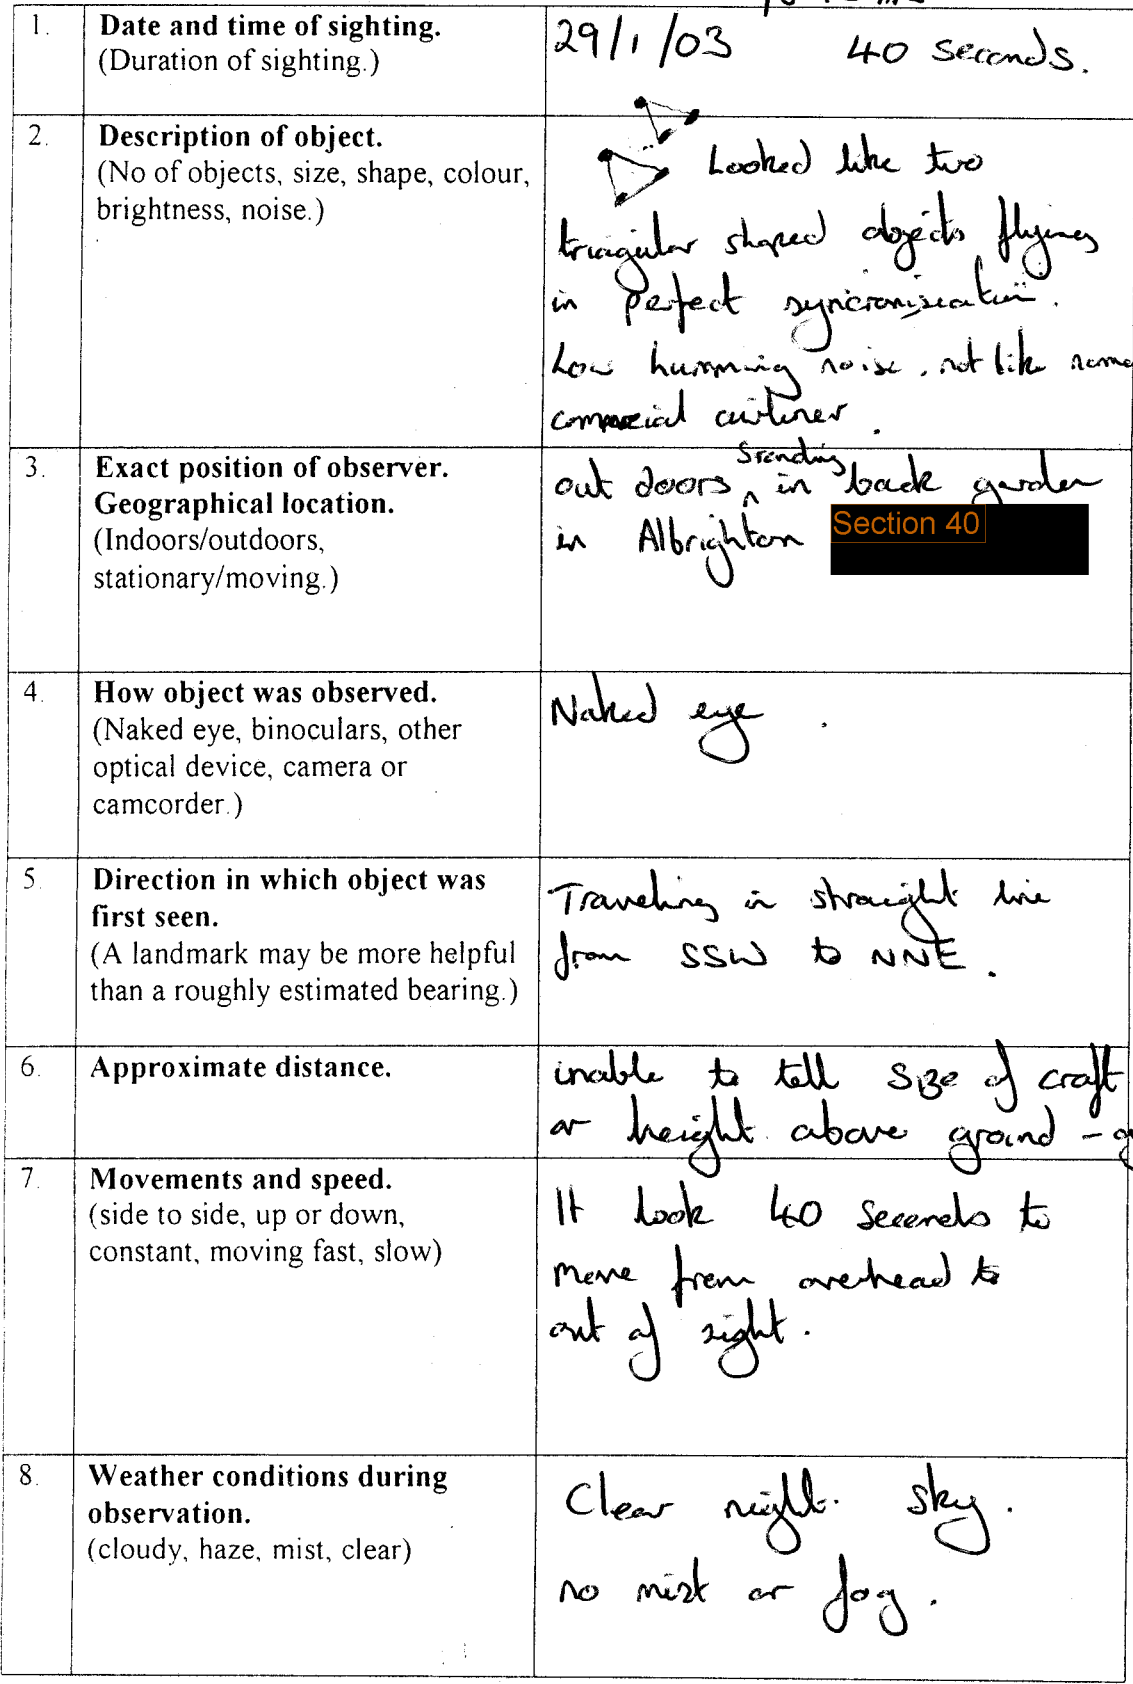 1. Date and time of sighting.
(Duration of sighting.)
29/1/03 40 seconds.
2. Description of object.
(No of objects, size, shape, colour,
brightness, noise.)
Looked like two
triagular shaped objects flying
in perfect syncronisation.
Low humming noise, not like
commercial airliner.
3. Exact position of observer.
Geographical location.
(Indoors/outdoors,
stationary/moving.)
out doors standing in back garden
in Albrighton Section 40
4. How object was observed.
(Naked eye, binoculars, other
optical device, camera or
camcorder.)
Naked eye.
5. Direction in which object was
first seen.
(A landmark may be more helpful
than a roughly estimated bearing.)
Traveling in straight line
from SSW to NNE.
6. Approximate distance.
unable to tell size of craft
or height above ground -
7. Movements and speed.
(side to side, up or down,
constant, moving fast, slow)
It took 40 seconds to
move from overhead to
out of sight.
8. Weather conditions during
observation.
(cloudy, haze, mist, clear)
Clear night sky.
no mist or fog.